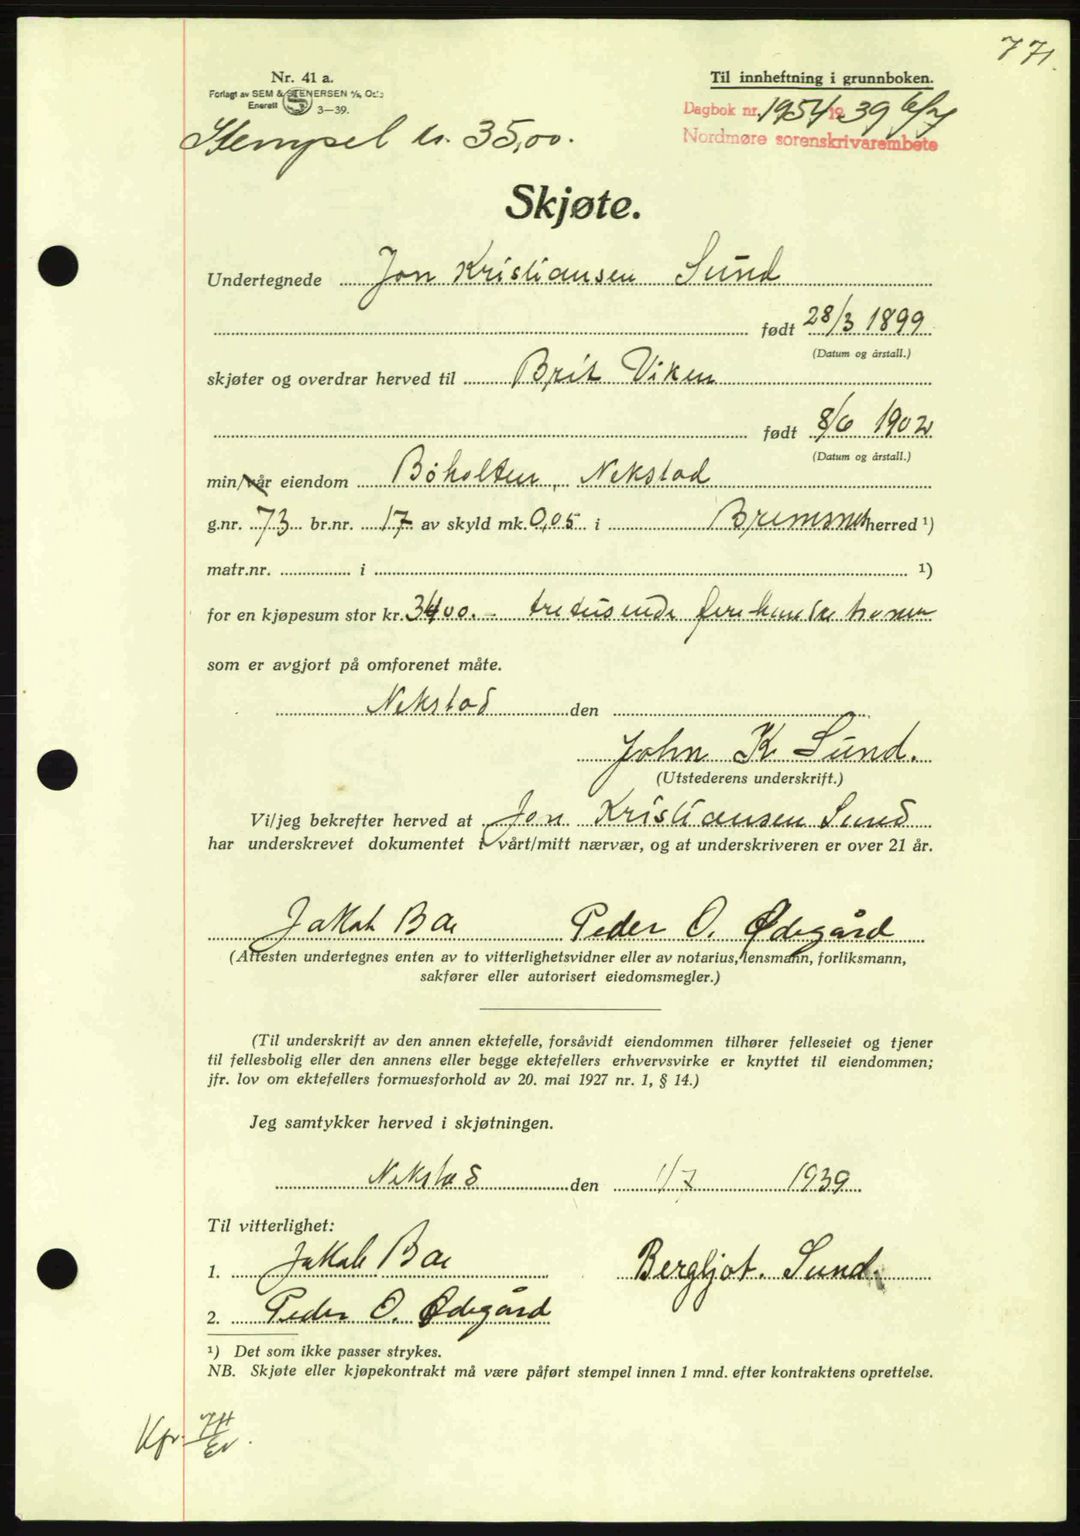 771.
Nr. 41 a.
Forlagt av SEM & STENERSEN A/S, Oslo
Enerett 3—39.
Til innheftning i grunnboken.
Dagbok nr. 1954 1939 6/7
Nordmøre sorenskrivarembete
Stempel kr. 35,00.
Skjøte.
Undertegnede Jon Kristiansen Sund
født 28/3 1899
(Datum og årstall.)
skjøter og overdrar herved til Brit Viken
født 8/6 1902
(Datum og årstall.)
min/vår eiendom Bøholten, Nekstad
g.nr. 73 br.nr. 17 av skyld mk. 0,05 i Bremsnes herred ¹)
matr.nr. i ¹)
for en kjøpesum stor kr. 3400.- tretusende firehundre kroner
som er avgjort på omforenet måte.
Nekstad den
John K Sund.
(Utstederens underskrift.)
Vi/jeg bekrefter herved at Jon Kristiansen Sund
har underskrevet dokumentet i vårt/mitt nærvær, og at underskriveren er over 21 år.
Jakob Bae Peder O. Ødegård
(Attesten undertegnes enten av to vitterlighetsvidner eller av notarius, lensmann, forliksmann,
sakfører eller autorisert eiedomsmegler.)
(Til underskrift av den annen ektefelle, forsåvidt eiendommen tilhører felleseiet og tjener
til fellesbolig eller den annens eller begge ektefellers erhvervsvirke er knyttet til eiendommen;
jfr. lov om ektefellers formuesforhold av 20. mai 1927 nr. 1, § 14.)
Jeg samtykker herved i skjøtningen.
Nekstad den 1/7 1939
Til vitterlighet:
1. Jakob Bae Bergljot. Sund.
2. Peder O. Ødegård
¹) Det som ikke passer strykes.
NB. Skjøte eller kjøpekontrakt må være påført stempel innen 1 mnd. efter kontraktens oprettelse.
Kfr.